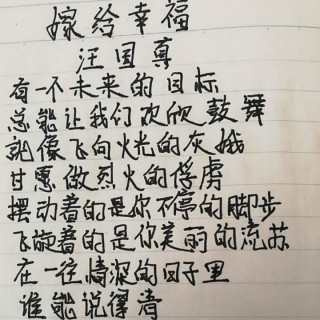 嫁给幸福
汪国真
有一个未来的目标
总能让我们欢欣鼓舞
就像飞向火光的灰蛾
甘愿做烈火的俘虏
摆动着的是你不停的脚步
飞旋着的是你美丽的流苏
在一往情深的日子里
谁能说得清